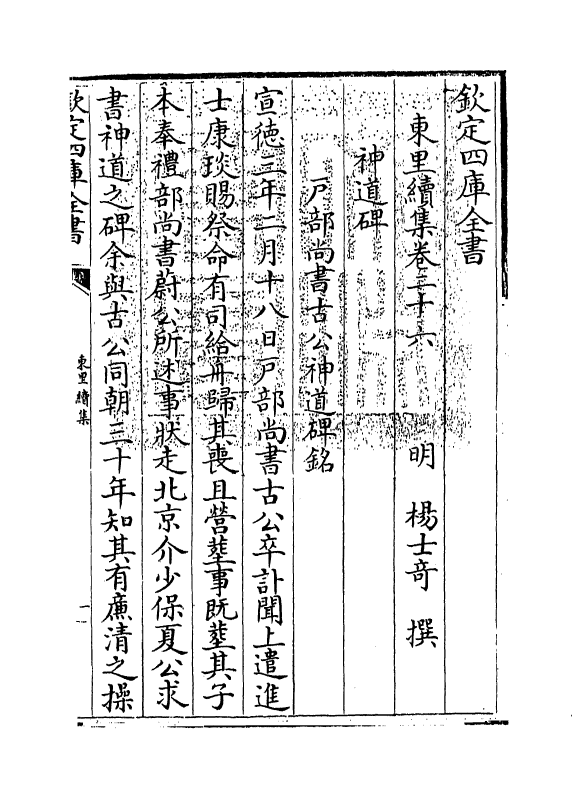 欽定四庫全書
東里續集卷二十六
明 楊士竒 撰
神道碑
戸部尚書古公神道碑銘
宣徳三年二月十八日戸部尚書古公卒訃聞上遣進
士康琰賜祭命有司給舟歸其喪且營塟事既塟其子
本奉禮部尚書蔚公所述事狀走北京介少保夏公求
書神道之碑余與古公同朝三十年知其有廉清之操
欽定四庫全書
東里續集
一